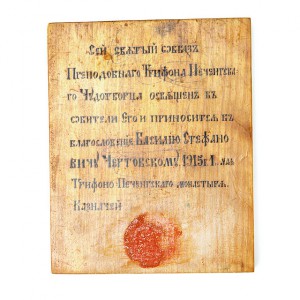 Сей святый образъ
Преподобнаго Трифона Печенгска
го Чудотворца освященъ въ
обители Его и приносится въ
благословеніе Василію Стефано
вичу Чертовскому 1915 г.
Трифоно-Печенгскаго монастыря.
Казначей